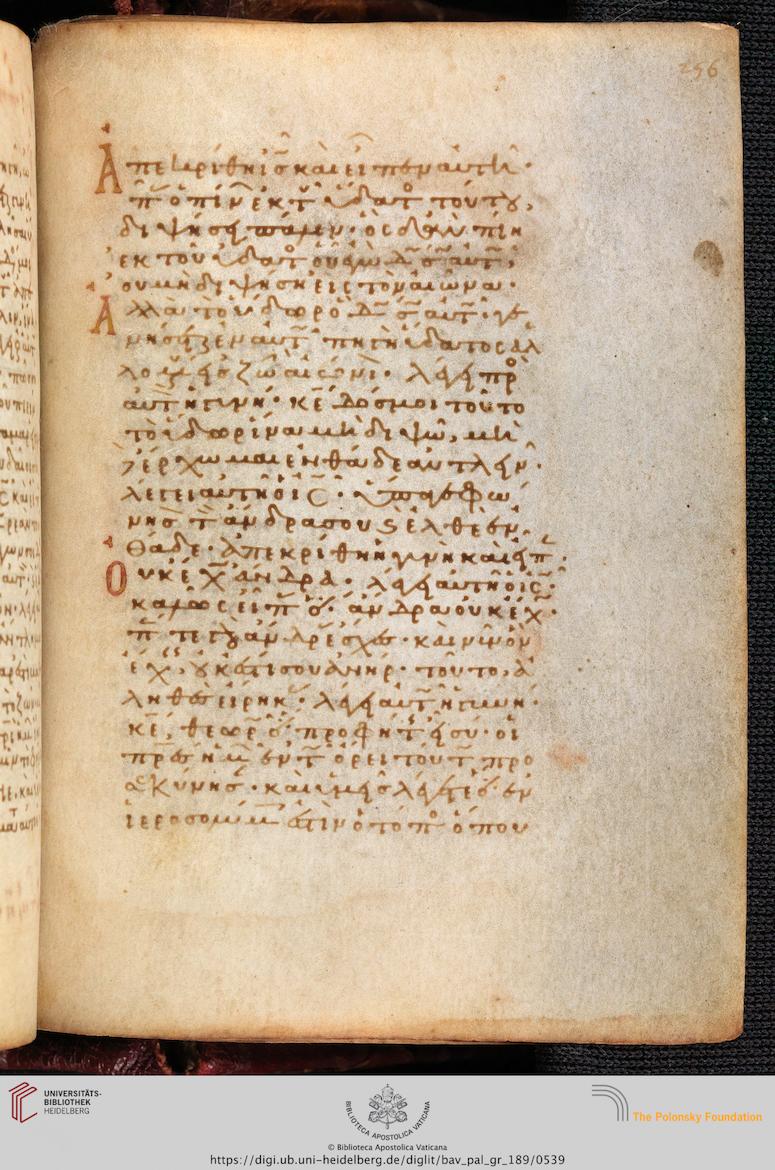 256
Ἀπεκρίθη ὁ ις καὶ εἶπεν αὐτῇ·
πᾶς ὁ πίνων ἐκ τοῦ ὕδατος τούτου,
διψήσει πάλιν· ὃς δ' ἂν πίῃ
ἐκ τοῦ ὕδατος οὗ ἐγὼ δώσω αὐτῷ,
οὐ μὴ διψήσῃ εἰς τὸν αἰῶνα·
Ἀλλὰ τὸ ὕδωρ ὃ δώσω αὐτῷ· γε
νήσεται ἐν αὐτῷ πηγὴ ὕδατος ἁλ
λομένου εἰς ζωὴν αἰώνιον· λέγει πρὸς
αὐτὸν ἡ γυνή· κε δός μοι τοῦτο
τὸ ὕδωρ ἵνα μὴ διψῶ, μὴ
δὲ ἔρχωμαι ἐνθάδε ἀντλεῖν·
λέγει αὐτῇ ὁ ις· ὕπαγε φώ
νησον τὸν ἄνδρα σου καὶ ἐλθὲ ἐν
θάδε· ἀπεκρίθη ἡ γυνὴ καὶ εἶπεν·
Οὐκ ἔχω ἄνδρα· λέγει αὐτῇ ὁ ις·
καλῶς εἶπας ὅτι ἄνδρα οὐκ ἔχω·
πέντε γὰρ ἄνδρας ἔσχες· καὶ νῦν ὃν
ἔχεις, οὐκ ἔστι σου ἀνήρ· τοῦτο ἀ
ληθὲς εἴρηκας· λέγει αὐτῷ ἡ γυνή·
κε, θεωρῶ ὅτι προφήτης εἶ σύ· οἱ
πρες ἡμῶν ἐν τῷ ὄρει τούτῳ προ
σεκύνησαν· καὶ ὑμεῖς λέγετε ὅτι ἐν
ἱεροσολύμοις ἐστὶν ὁ τόπος ὅπου
UNIVERSITÄTS-
BIBLIOTHEK
HEIDELBERG
BIBLIOTECA APOSTOLICA VATICANA
The Polonsky Foundation
© Biblioteca Apostolica Vaticana
https://digi.ub.uni-heidelberg.de/diglit/bav_pal_gr_189/0539